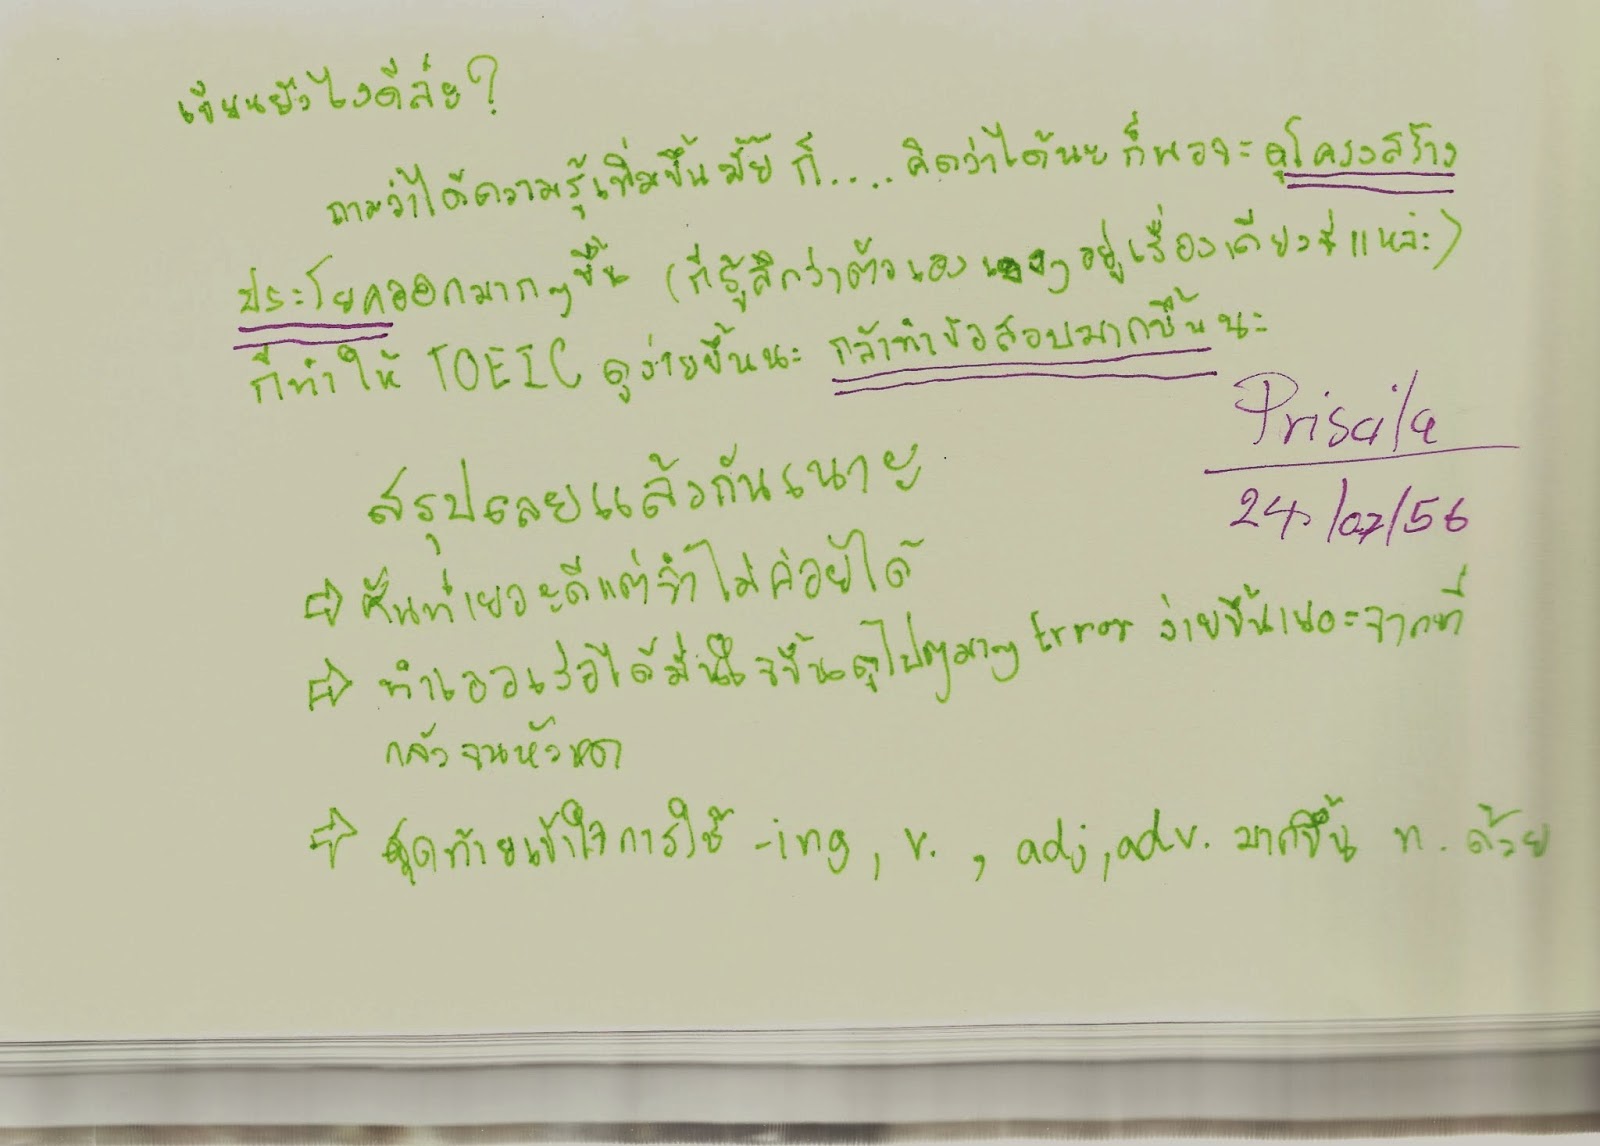 เขียนยังไงดีล่ะ?
ถามว่าได้ความรู้เพิ่มขึ้นมั้ย ก็.... คิดว่าได้นะ ก็พอจะดูโครงสร้าง
ประโยคออกมากๆขึ้น (ก็รู้สึกว่าตัวเอง งงๆอยู่เรื่องเดียวนี่แหล่ะ)
ก็ทำให้ TOEIC ดูง่ายขึ้นนะ กล้าทำข้อสอบมากขึ้นนะ
Priscila
24/07/56
สรุปเลยแล้วกันเนาะ
ศัพท์เยอะดีแต่จำไม่ค่อยได้
ทำเออเร่อได้มั่นใจขึ้น Error ง่ายขึ้นเยอะจากที่
กลัวจนหัวหด
สุดท้ายเข้าใจการใช้ -ing, v. , adj, adv. มากขึ้น n. ด้วย